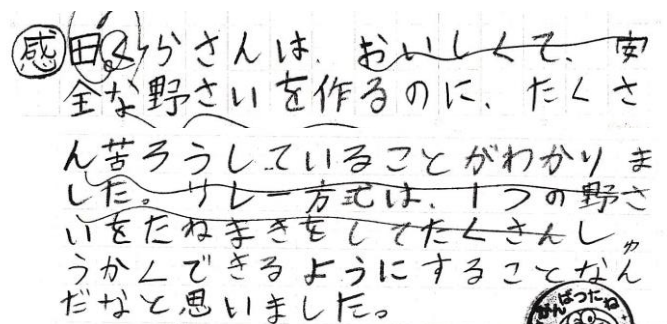 感 田くらさんは、おいしくて、安
全な野さいを作るのに、たくさ
ん苦ろうしていることがわかりま
した。リレー方式は、1つの野さ
いをたねまきをしてたくさんしゅ
うかくできるようにすることなん
だなと思いました。
がんばったね